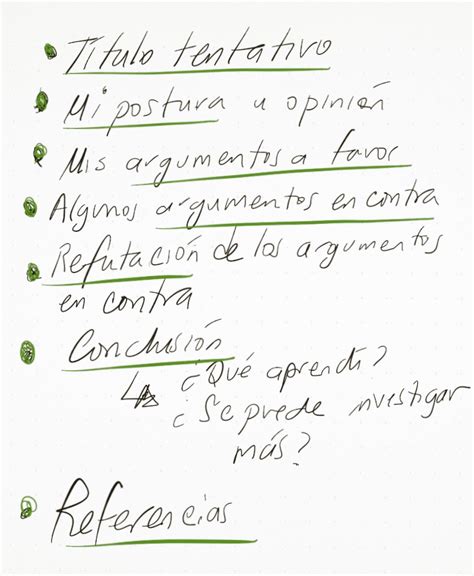 Título tentativo
Mi postura u opinión
Mis argumentos a favor
Algunos argumentos en contra
Refutación de los argumentos
en contra
Conclusión
¿Qué aprendí?
¿Se puede investigar
más?
Referencias